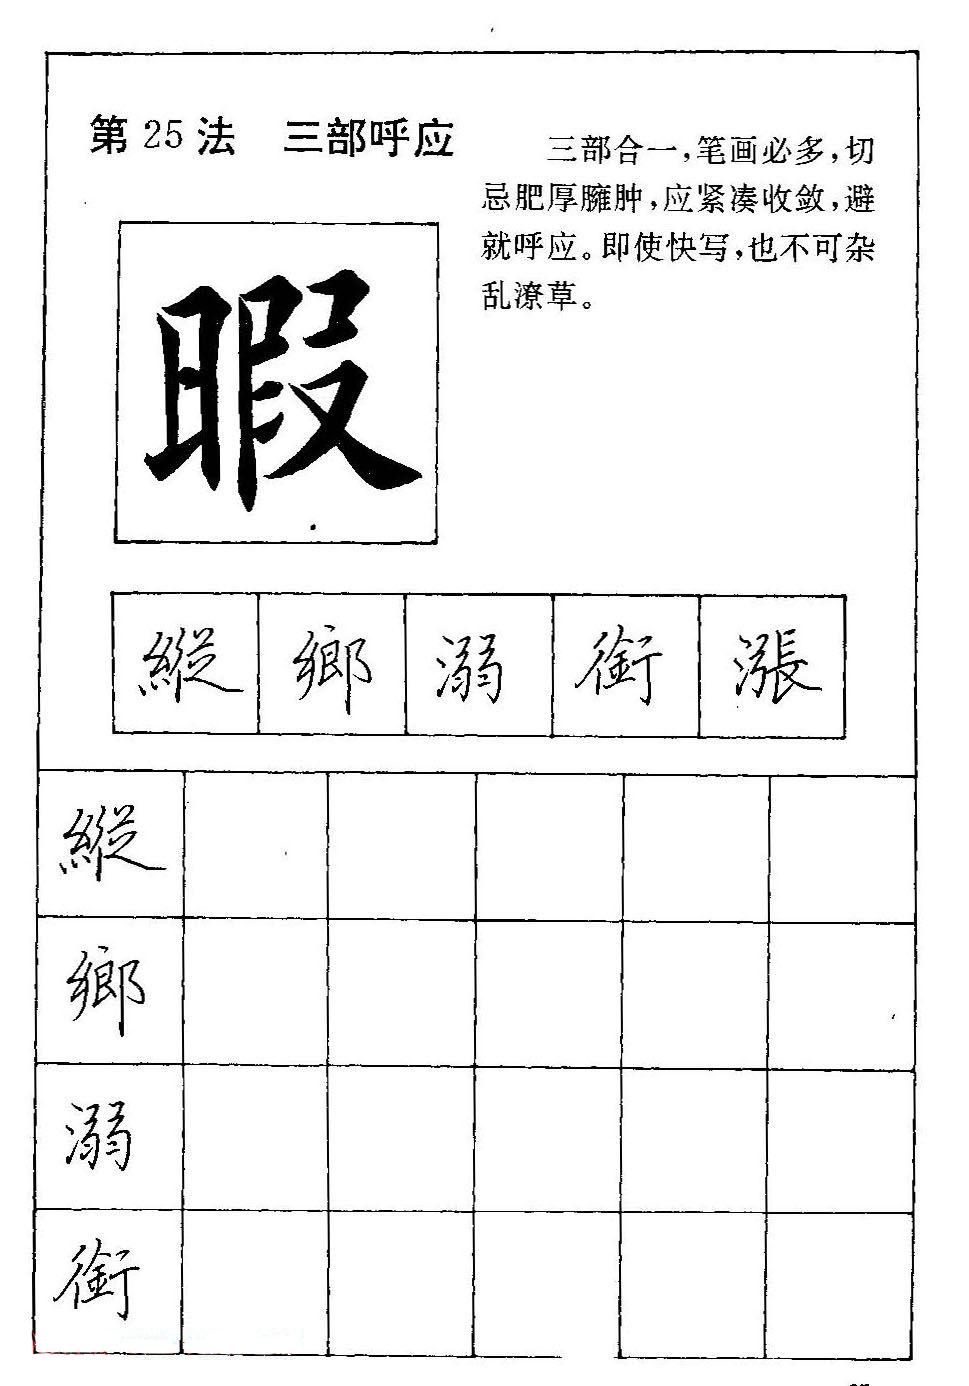 第25法 三部呼应
三部合一，笔画必多，切
忌肥厚臃肿，应紧凑收敛，避
就呼应。即使快写，也不可杂
乱潦草。
暇
縱 鄉 溺 銜 漲
縱
鄉
溺
銜